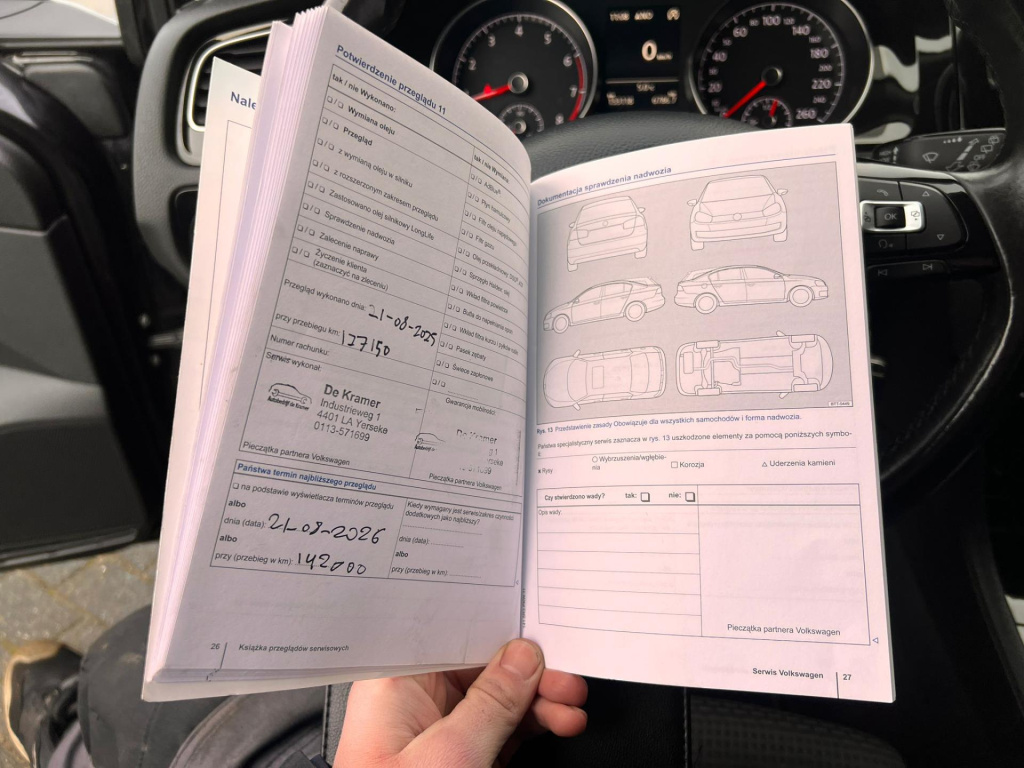 Nale
Potwierdzenie przeglądu 11
tak / nie Wykonano:
Wymiana oleju
Przegląd
z wymianą oleju w silniku
z rozszerzonym zakresem przeglądu
Zastosowano olej silnikowy LongLife
Sprawdzenie nadwozia
Zalecenie naprawy
Życzenie klienta
(zaznaczyć na zleceniu)
tak / nie Wymiana:
AdBlue®
Płyn hamulcowy
Wkład filtra powietrza
Pasek zębaty
Świece zapłonowe
Gwarancja mobilności:
Przegląd wykonano dnia: 21-08-2025
przy przebiegu km: 127150
Numer rachunku:
Serwis wykonał:
Autobedrijf de Kramer
De Kramer
Industrieweg 1
4401 LA Yerseke
0113-571699
Pieczątka partnera Volkswagen
Pieczątka partnera Volkswagen
Państwa termin najbliższego przeglądu
na podstawie wyświetlacza terminów przeglądu
albo
dnia (data): 21-08-2026
albo
przy (przebieg w km): 142000
Kiedy wymagany jest serwis/zakres czynności
dodatkowych jako najbliższy?
dnia (data):
albo
przy (przebieg w km):
26 Książka przeglądów serwisowych
Dokumentacja sprawdzenia nadwozia
Rys. 13 Przedstawienie zasady Obowiązuje dla wszystkich samochodów i forma nadwozia.
Państwa specjalistyczny serwis zaznacza w rys. 13 uszkodzone elementy za pomocą poniższych symbo-
li:
Rysy
Wybrzuszenia/wgłębie-
nia
Korozja
Uderzenia kamieni
Czy stwierdzono wady? tak: nie:
Opis wady
Pieczątka partnera Volkswagen
Serwis Volkswagen 27
2 3 4 5 6 7 8
0
km/h
20 40 60 80 100 120 140 160 180 200 220 240 260
OK